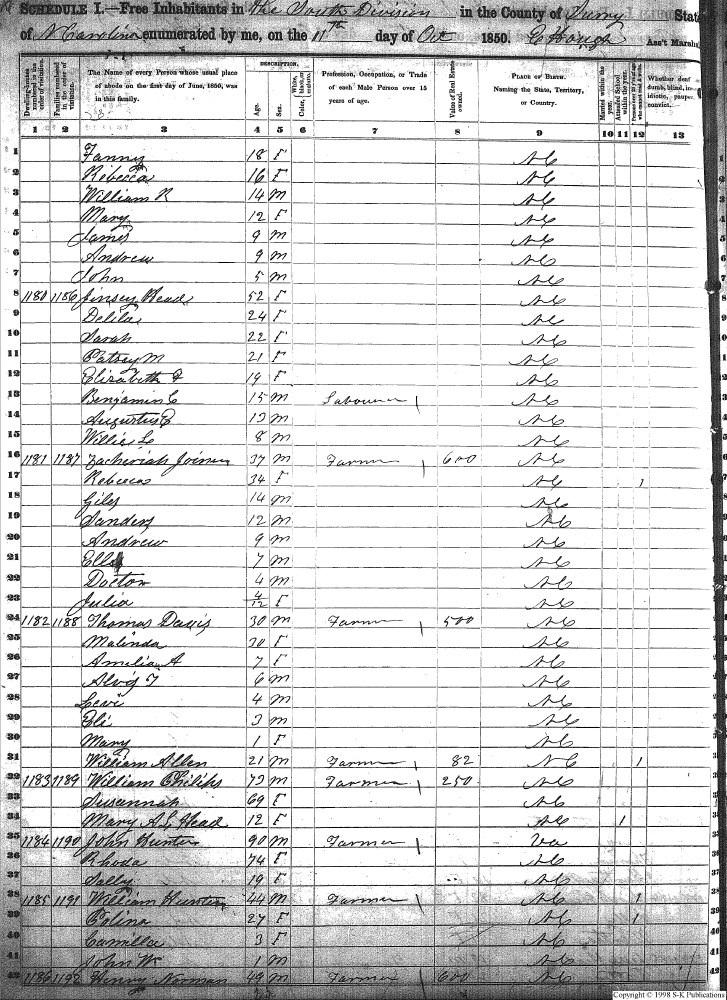 SCHEDULE I.—Free Inhabitants in The South Division in the County of Surry State
of N Carolina enumerated by me, on the 11th day of Oct 1850. Ass't Marshal
Dwelling-houses numbered in the order of visitation.
Families numbered in the order of visitation.
The Name of every Person whose usual place of abode on the first day of June, 1850, was in this family.
DESCRIPTION.
Age.
Sex.
White, black, or mulatto. Color,
Profession, Occupation, or Trade of each Male Person over 15 years of age.
Value of Real Estate owned.
PLACE OF BIRTH. Naming the State, Territory, or Country.
Married within the year.
Attended School within the year.
Persons over 20 y'rs of age who cannot read & write.
Whether deaf and dumb, blind, insane, idiotic, pauper, or convict.
1 2 3 4 5 6 7 8 9 10 11 12 13
1 Fanny 18 F NC
2 Rebecca 16 F NC
3 William R 14 M NC
4 Mary 12 F NC
5 James 9 M NC
6 Andrew 9 M NC
7 John 5 M NC
8 1180 1186 Jinsey Head 52 F NC
9 Delila 24 F NC
10 Sarah 22 F NC
11 Patsey M 21 F NC
12 Elizabeth F 19 F NC
13 Benjamin C 15 M Labourer NC
14 Augustus E 13 M NC
15 Willie L 8 M NC
16 1181 1187 Zacheriah Joiner 37 M Farmer 600 NC
17 Rebecca 34 F NC 1
18 Giles 14 M NC
19 Sanders 12 M NC
20 Andrew 9 M NC
21 7 M NC
22 Doctor 4 M NC
23 Julia 4/12 F NC
24 1182 1188 Thomas Davis 30 M Farmer 500 NC
25 Malinda 30 F NC
26 Amelia A 7 F NC
27 Alvis T 6 M NC
28 Levi 4 M NC
29 Eli 3 M NC
30 Mary 1 F NC
31 William Allen 21 M Farmer 82 NC 1
32 1183 1189 William Philips 73 M Farmer 250 NC
33 Susannah 69 F NC
34 Mary A L Head 12 F NC 1
35 1184 1190 John Hunter 90 M Farmer Va
36 Rhoda 74 F NC
37 Sally 19 F NC
38 1185 1191 William Hunter 44 M Farmer NC 1
39 Polina 27 F NC 1
40 Camilla 3 F NC
41 John W 1 M NC
42 1186 1192 Henry Norman 49 M Farmer 600 NC
Copyright © 1998 S-K Publications